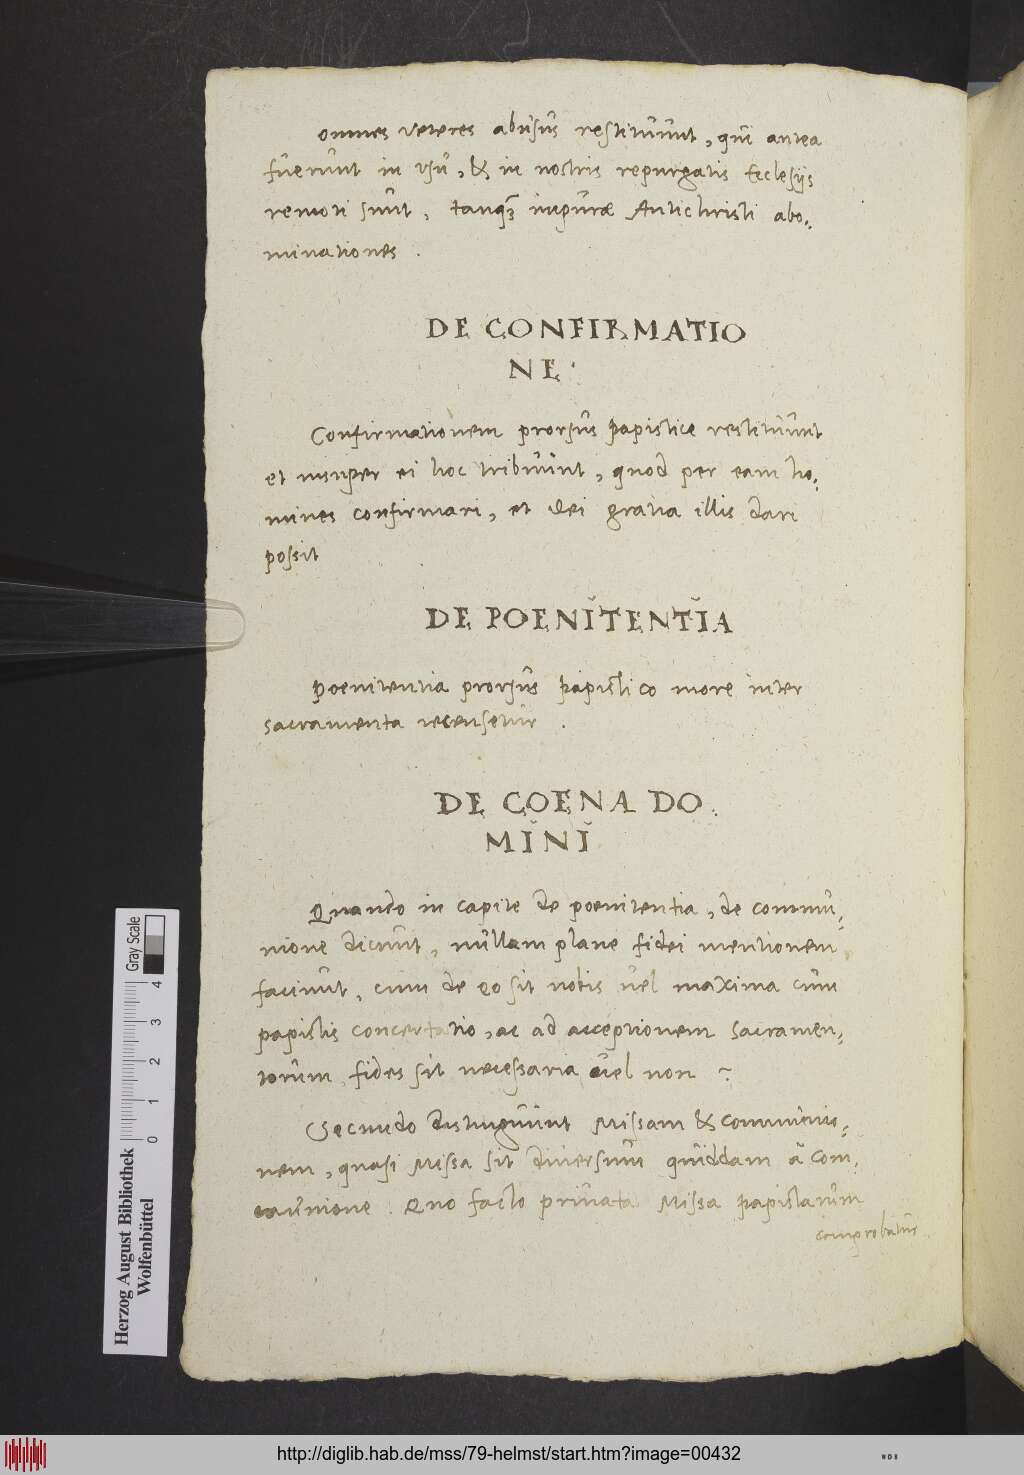 omnes veteres abusus restituunt, qui antea
fuerunt in usu, & in nostris repurgatis Ecclesijs
remoti sunt, tanqȝ impuræ Antichristi abo-
minationes.
DE CONFIRMATIO
NE.
Confirmationem prorsus papisticè restituunt
et nuper ei hoc tribuunt, quod per eam ho-
mines confirmari, et dei gratia illis dari
possit
DE POENITENTIA
Poenitentia prorsus papistico more inter
sacramenta recensetur.
DE COENA DO
MINI
Quando in capite de poenitentia, de commu-
nione dicunt, nullam plane fidei mentionem
faciunt, cum de eo sit nobis vel maxima cum
papistis concertatio, ac ad acceptionem sacramen-
torum fides sit necessaria vel non?
Secundo distinguunt Missam & communio-
nem, quasi Missa sit diversum quiddam à com-
munione. Quo facto privata Missa papistarum
comprobatur
Gray Scale
4
3
2
1
0
Herzog August Bibliothek
Wolfenbüttel
http://diglib.hab.de/mss/79-helmst/start.htm?image=00432
WDB